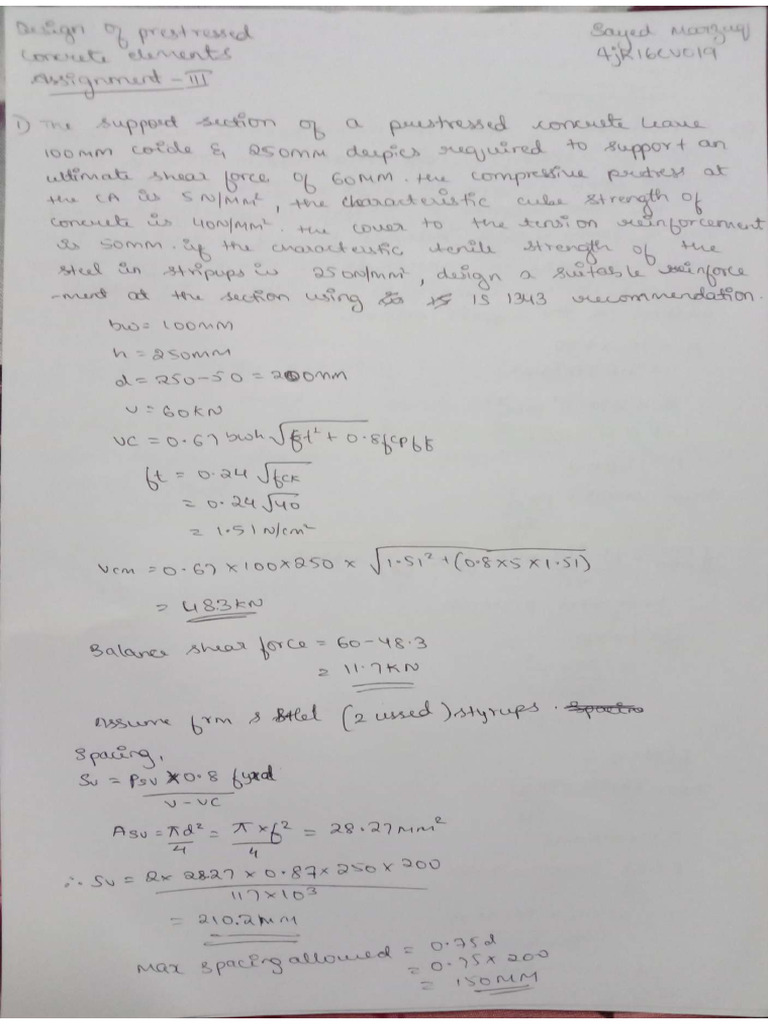 Design of prestressed
concrete elements
Assignment - III
Sayed Marzuq
4JK16CV019
1) The support section of a prestressed concrete
100MM & 250MM required to support an
ultimate shear force of 60MM. the compressive at
the CA is 5N/MM², the characteristic cube strength of
concrete is 40N/MM². the cover to the tension reinforcement
is 50MM. if the characteristic strength of the
steel in is 250N/MM², design a suitable reinforce
-ment at the section using IS 1343 recommendation.
bw = 100MM
h = 250MM
d = 250-50 = 200MM
V = 60KN
VC = 0.67 bwh √ft² + 0.8fcpft
ft = 0.24 √fck
= 0.24 √40
= 1.51 N/cm²
Vcm = 0.67 × 100 × 250 × √1.51² + (0.8×5×1.51)
= 48.3KN
Balance shear force = 60-48.3
= 11.7KN
Assume (2 ussed) styrups.
Spacing,
Sv = × 0.8 fyxd
V-VC
Asv = πd²/4 = π×6²/4 = 28.27MM²
∴ Sv = 2× 2827 × 0.87 × 250 × 200
117×10³
= 210.2MM
Max spacing allowed = 0.75d
= 0.75 × 200
= 150MM